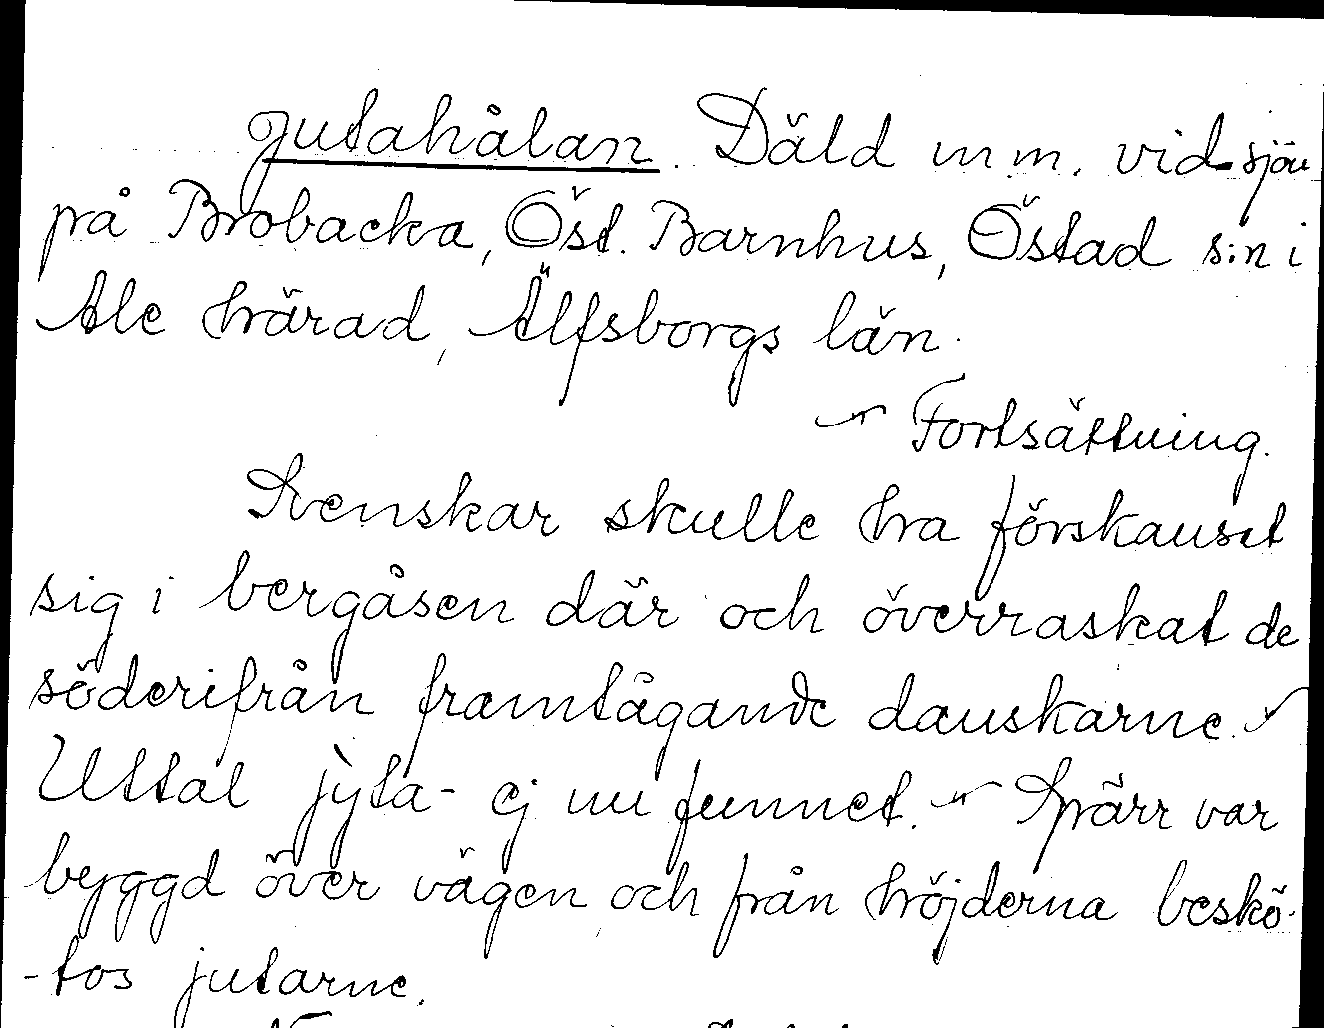 Jutahålan. Däld m.m. vid sjön
på Brobacka, Öst. Barnhus, Östad s:n i
Ale härad, Älfsborgs län.
— Fortsättning.
Svenskar skulle ha förskansat
sig i bergåsen där och överraskat de
söderifrån framtågande danskarne. —
Uttal jỳta- ej nu funnet. — Spärr var
byggd över vägen och från höjderna beskö-
-tos jutarne.